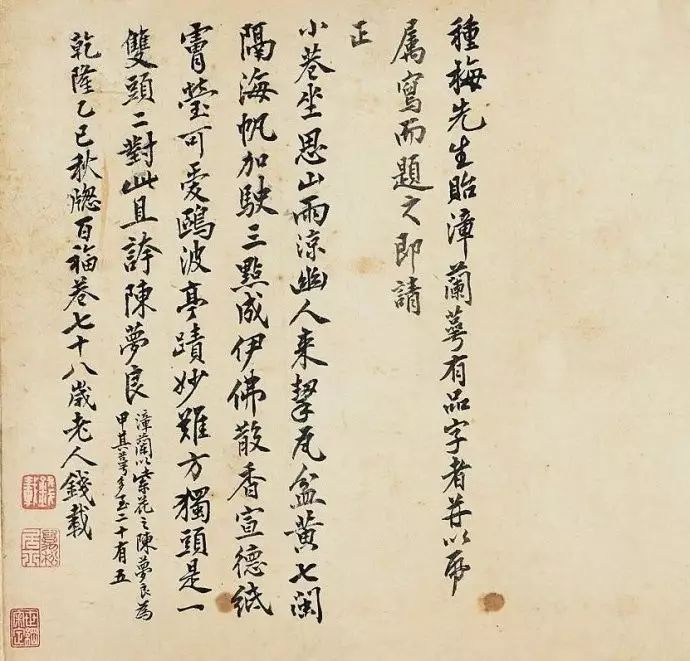 種梅先生貽漳蘭萼有品字者并以帋
属寫而題之即請
正
小巷坐思山雨涼幽人来挈瓦盆黄七閩
隔海帆加駛三點成伊佛散香宣德紙
膚瑩可愛鷗波亭蹟妙難方獨頭是一
雙頭二對此且誇陳夢良
漳蘭以紫花之陳夢良為
甲其萼多至二十有五
乾隆乙巳秋憁百福巷七十八歲老人錢載